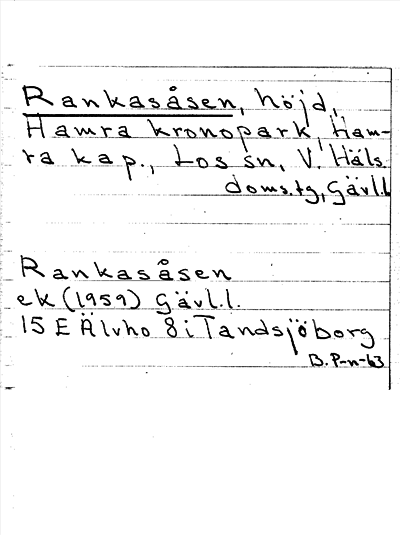 Rankasåsen, höjd,
Hamra kronopark, Ham-
ra kap., Los sn, V. Häls.
doms.tg, Gävl.l.
Rankasåsen
ek (1959) Gävl.l.
15 E Älvho 8i Tandsjöborg
B. P-n-63